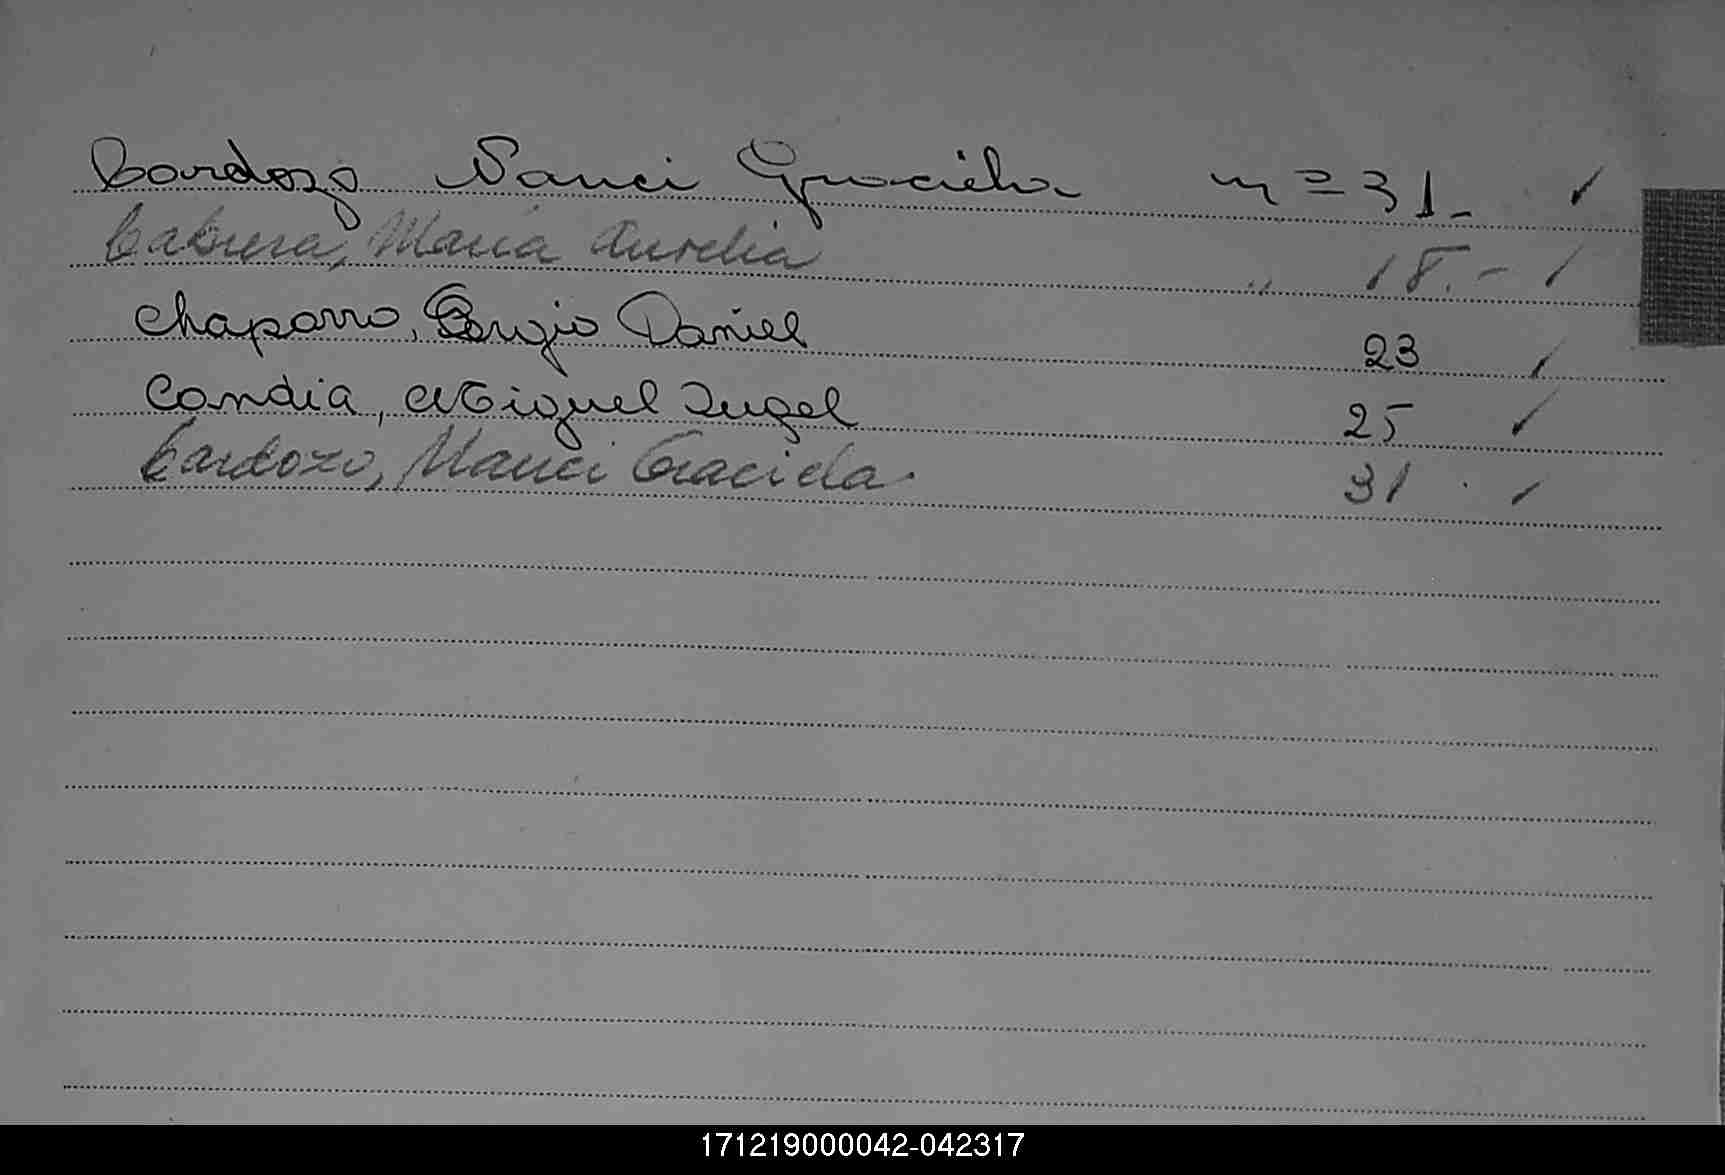 Cardozo Nanci Graciela nº 31- ✓
Cabrera, Maria Aurelia " 18.- ✓
Chaparro, Sergio Daniel 23 ✓
Candia, Miguel Angel 25 ✓
Cardozo, Nanci Graciela. 31. ✓
171219000042-042317